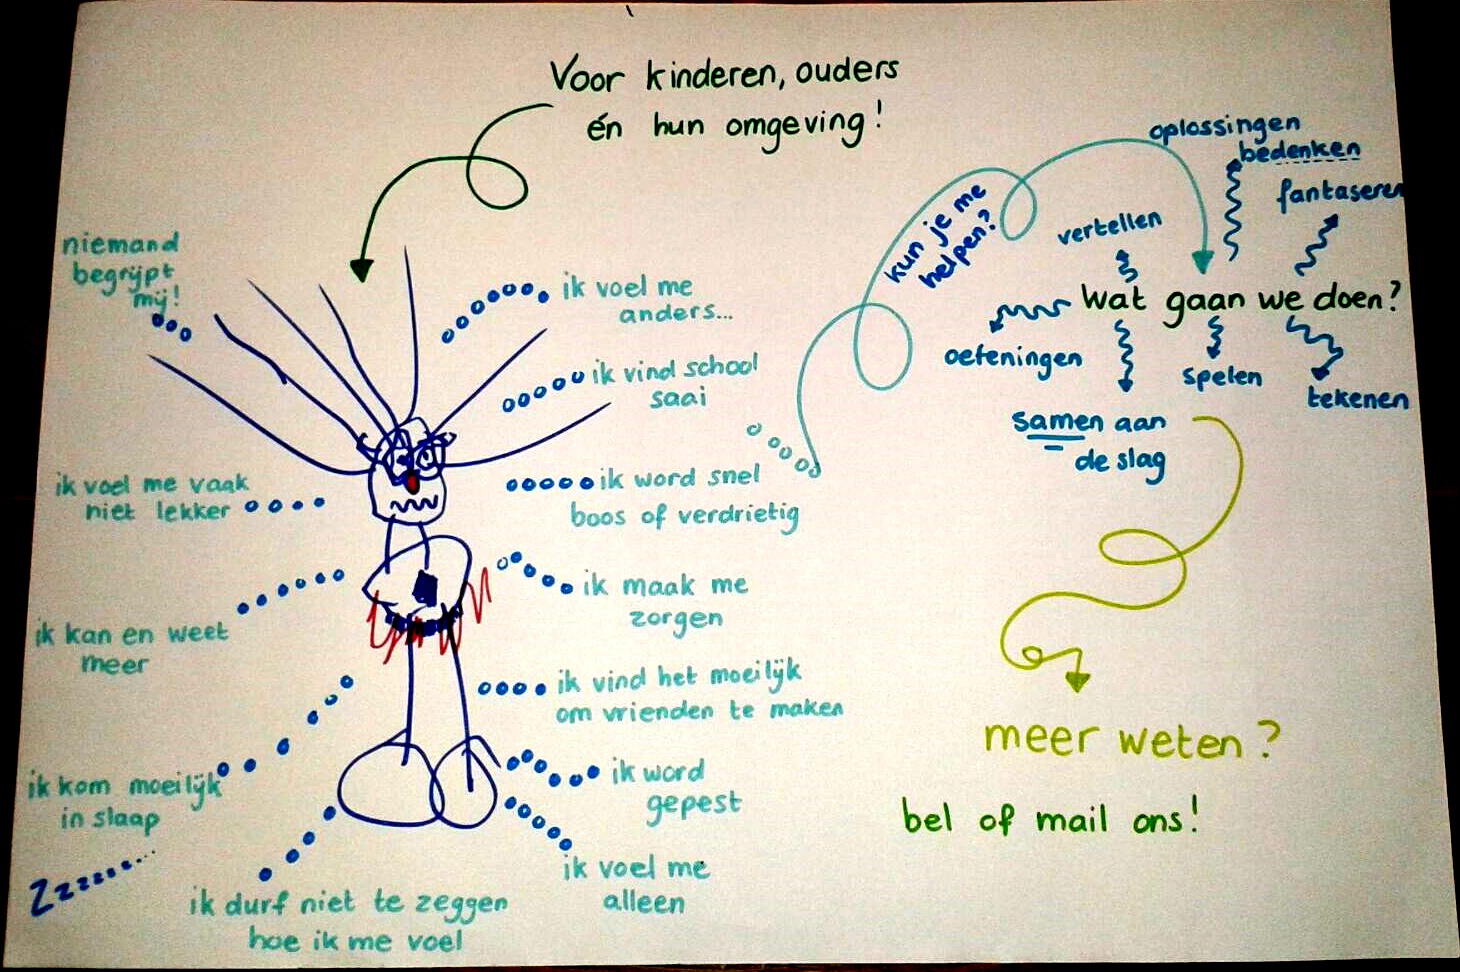 Voor kinderen, ouders
én hun omgeving!
niemand
begrijpt
mij!
ik voel me
anders...
ik vind school
saai
ik voel me vaak
niet lekker
ik word snel
boos of verdrietig
ik kan en weet
meer
ik maak me
zorgen
ik vind het moeilijk
om vrienden te maken
ik kom moeilijk
in slaap
Zzzzzz...
ik word
gepest
ik voel me
alleen
ik durf niet te zeggen
hoe ik me voel
kun je me
helpen?
Wat gaan we doen?
oplossingen
bedenken
fantaseren
vertellen
oefeningen
samen aan
de slag
spelen
tekenen
meer weten?
bel of mail ons!